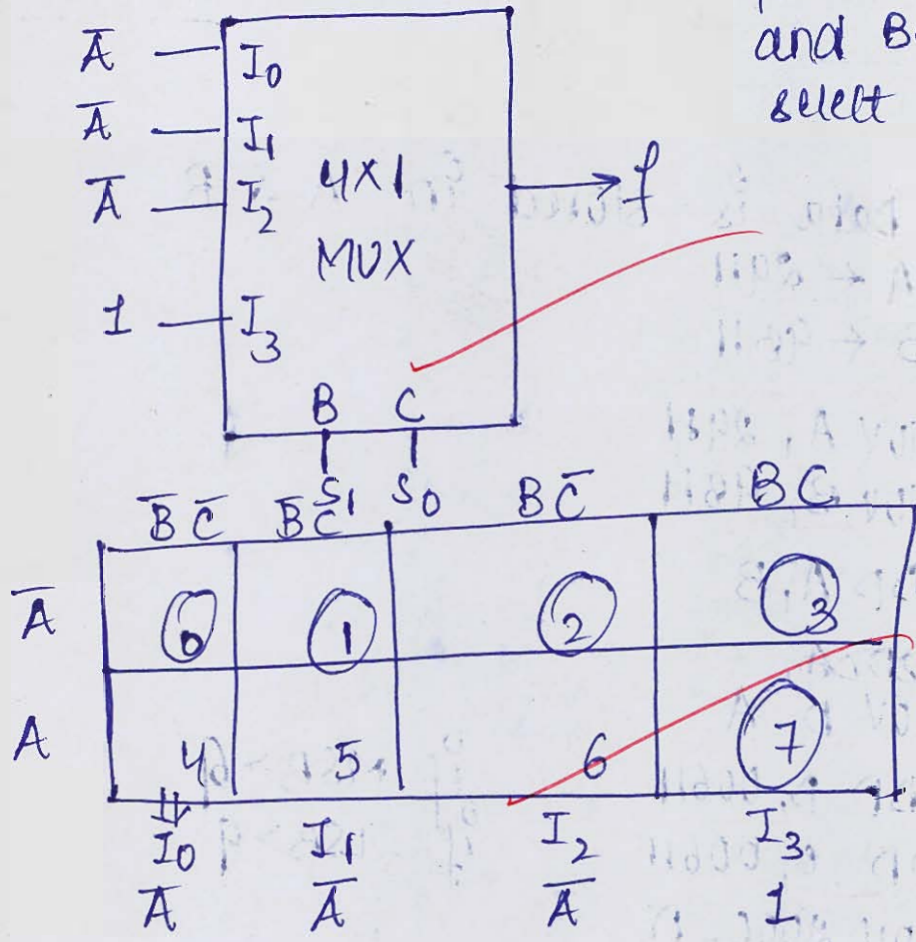 and B
select
A̅ I₀
A̅ I₁
A̅ I₂
1 I₃
4X1
MUX
f
B C
S₁ S₀
B̅ C̅ B̅ C B C̅ B C
A̅ 0 1 2 3
A 4 5 6 7
I₀ I₁ I₂ I₃
A̅ A̅ A̅ 1